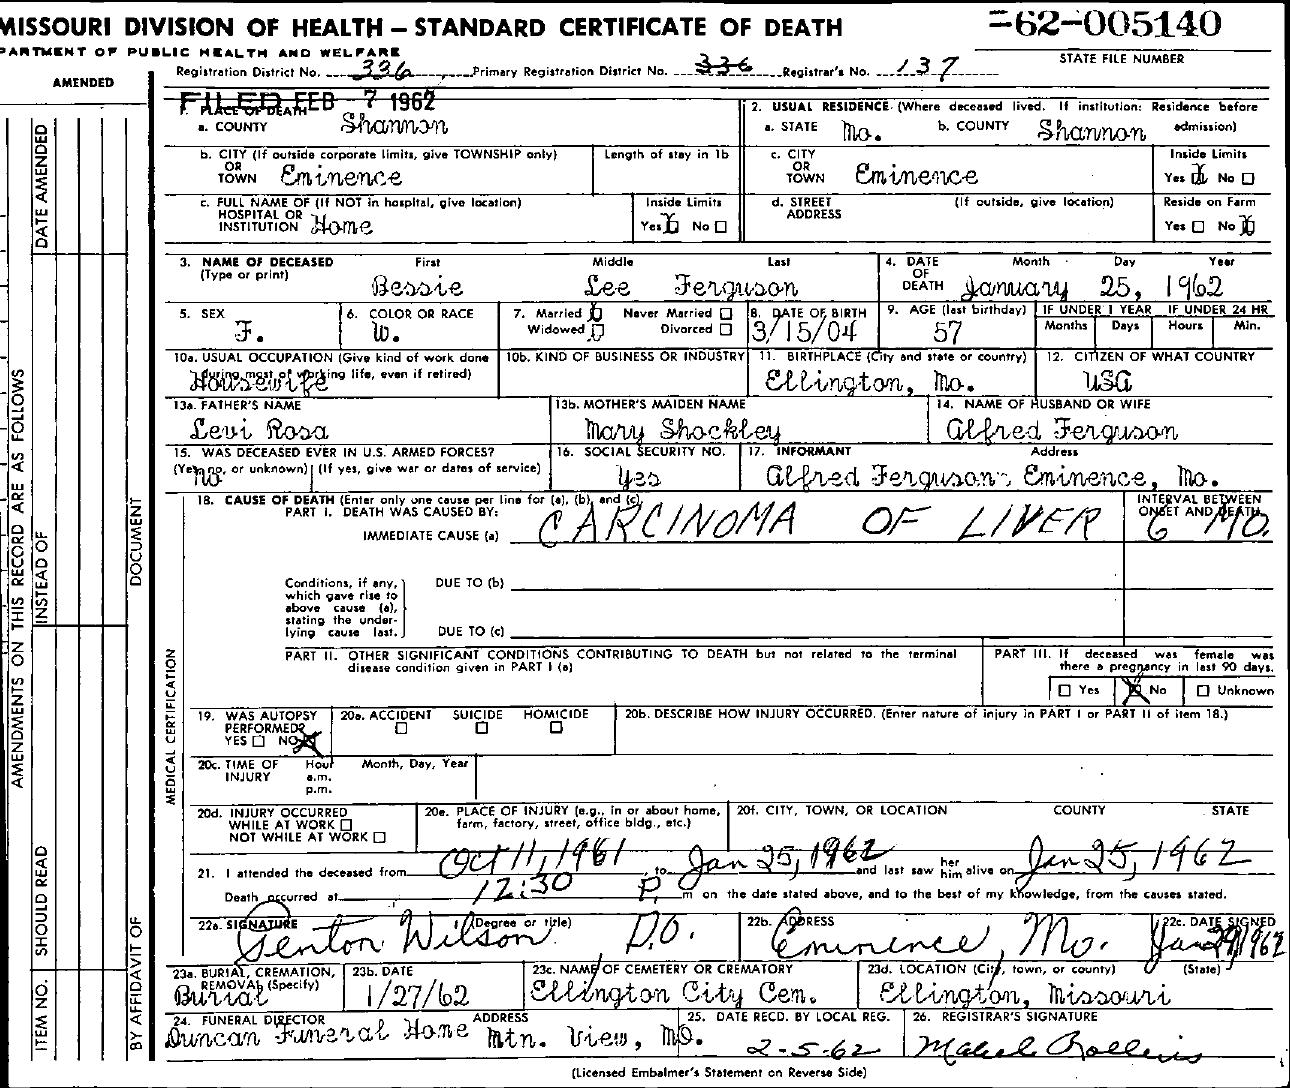 MISSOURI DIVISION OF HEALTH – STANDARD CERTIFICATE OF DEATH
=62-005140
PARTMENT OF PUBLIC HEALTH AND WELFARE
STATE FILE NUMBER
AMENDED
Registration District No. 336 Primary Registration District No. 336 Registrar's No. 137
FILED FEB - 7 1962
1. PLACE OF DEATH
a. COUNTY Shannon
2. USUAL RESIDENCE (Where deceased lived. If institution: Residence before admission)
a. STATE Mo. b. COUNTY Shannon
b. CITY (If outside corporate limits, give TOWNSHIP only) OR TOWN Eminence
Length of stay in 1b
c. CITY OR TOWN Eminence
Inside Limits
Yes X No
c. FULL NAME OF (If NOT in hospital, give location) HOSPITAL OR INSTITUTION Home
Inside Limits
Yes X No
d. STREET ADDRESS (If outside, give location)
Reside on Farm
Yes No X
3. NAME OF DECEASED (Type or print) First Middle Last
Bessie Lee Ferguson
4. DATE OF DEATH Month Day Year
January 25, 1962
5. SEX
F.
6. COLOR OR RACE
W.
7. Married X Never Married
Widowed Divorced
8. DATE OF BIRTH
3/15/04
9. AGE (last birthday)
57
IF UNDER 1 YEAR IF UNDER 24 HR
Months Days Hours Min.
10a. USUAL OCCUPATION (Give kind of work done during most of working life, even if retired)
Housewife
10b. KIND OF BUSINESS OR INDUSTRY
11. BIRTHPLACE (City and state or country)
Ellington, Mo.
12. CITIZEN OF WHAT COUNTRY
USA
13a. FATHER'S NAME
Levi Rosa
13b. MOTHER'S MAIDEN NAME
Mary Shockley
14. NAME OF HUSBAND OR WIFE
Alfred Ferguson
15. WAS DECEASED EVER IN U.S. ARMED FORCES?
(Yes, no, or unknown) (If yes, give war or dates of service)
no
16. SOCIAL SECURITY NO.
Yes
17. INFORMANT Address
Alfred Ferguson, Eminence, Mo.
18. CAUSE OF DEATH (Enter only one cause per line for (a), (b), and (c).
PART I. DEATH WAS CAUSED BY:
IMMEDIATE CAUSE (a) CARCINOMA OF LIVER
INTERVAL BETWEEN ONSET AND DEATH
6 MO.
Conditions, if any, which gave rise to above cause (a), stating the underlying cause last.
DUE TO (b)
DUE TO (c)
PART II. OTHER SIGNIFICANT CONDITIONS CONTRIBUTING TO DEATH but not related to the terminal disease condition given in PART I (a)
PART III. If deceased was female was there a pregnancy in last 90 days.
Yes X No Unknown
19. WAS AUTOPSY PERFORMED?
YES NO X
20a. ACCIDENT SUICIDE HOMICIDE
20b. DESCRIBE HOW INJURY OCCURRED. (Enter nature of injury in PART I or PART II of item 18.)
20c. TIME OF INJURY Hour a.m. p.m. Month, Day, Year
20d. INJURY OCCURRED
WHILE AT WORK
NOT WHILE AT WORK
20e. PLACE OF INJURY (e.g., in or about home, farm, factory, street, office bldg., etc.)
20f. CITY, TOWN, OR LOCATION COUNTY STATE
21. I attended the deceased from Oct 11, 1961 to Jan 25, 1962 and last saw her him alive on Jan 25, 1962
Death occurred at 12:30 P m on the date stated above, and to the best of my knowledge, from the causes stated.
22a. SIGNATURE (Degree or title)
Wilson D.O.
22b. ADDRESS
Eminence, Mo.
22c. DATE SIGNED
Jan 29, 1962
23a. BURIAL, CREMATION, REMOVAL (Specify)
Burial
23b. DATE
1/27/62
23c. NAME OF CEMETERY OR CREMATORY
Ellington City Cem.
23d. LOCATION (City, town, or county) (State)
Ellington, Missouri
24. FUNERAL DIRECTOR ADDRESS
Duncan Funeral Home Mtn. View, MO.
25. DATE RECD. BY LOCAL REG.
2-5-62
26. REGISTRAR'S SIGNATURE
Mabel Rollins
(Licensed Embalmer's Statement on Reverse Side)
AMENDMENTS ON THIS RECORD ARE AS FOLLOWS
DATE AMENDED
INSTEAD OF
SHOULD READ
ITEM NO.
DOCUMENT
BY AFFIDAVIT OF
MEDICAL CERTIFICATION